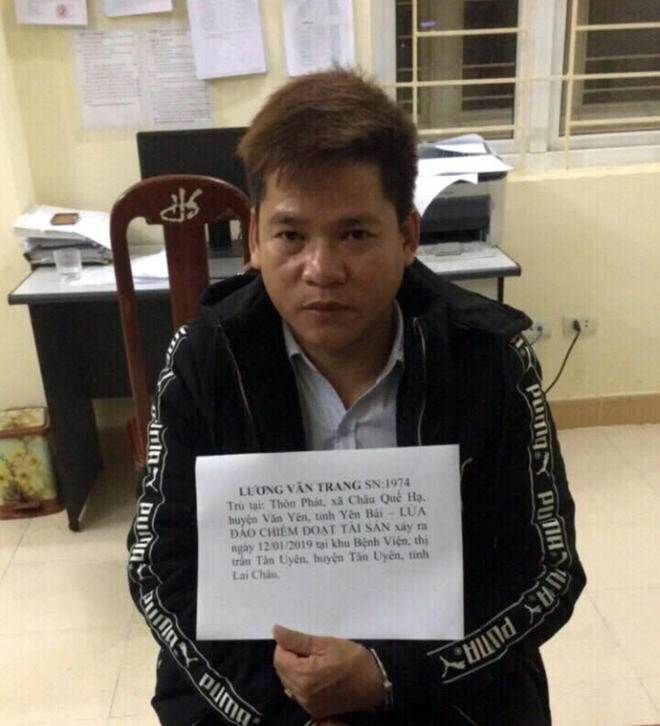 LƯƠNG VĂN TRANG SN:1974
Trú tại: Thôn Phát, xã Châu Quế Hạ,
huyện Văn Yên, tỉnh Yên Bái – LỪA
ĐẢO CHIẾM ĐOẠT TÀI SẢN xảy ra
ngày 12/01/2019 tại khu Bệnh Viện, thị
trấn Tân Uyên, huyện Tân Uyên, tỉnh
Lai Châu.
PUMA
PUMA
PUMA
PUMA
PUMA
PUMA
PUMA